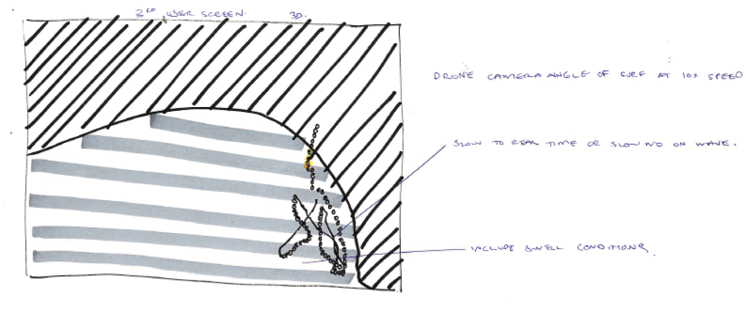 2ND USER SCREEN. 3D.
DRONE CAMERA ANGLE OF SURF AT 10X SPEED
SLOW TO REAL TIME OR SLOW MO ON WAVE.
INCLUDE SWELL CONDITIONS.